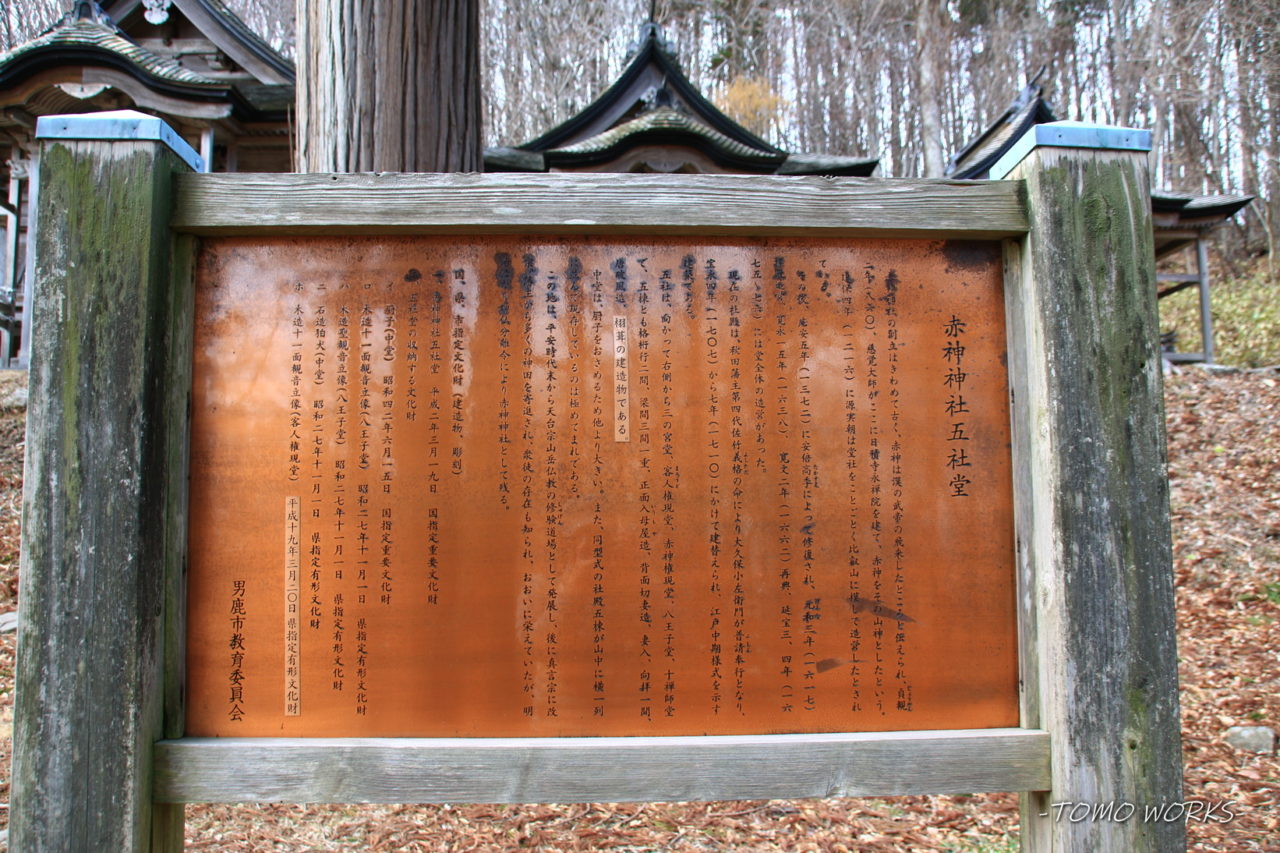 赤神神社五社堂
の創立はきわめて古く、赤神は漢の武帝の飛来したところと伝えられ、貞観
二年(八六〇)、慈覚大師がここに日積寺永禅院を建て、赤神をその山神としたという。
四年(一二一六)に源実朝は堂社をことごとく比叡山に模して造営したとされ
て
の後、応安五年(一三七二)に安倍高季によって修復され、元和三年(一六一七)
寛永一五年(一六三八)、寛文二年(一六六二)再興、延宝三、四年(一六
七五、七六)には堂全体の造営があった。
現在の社殿は、秋田藩主第四代佐竹義格の命により大久保小左衛門が普請奉行となり、
宝永四年(一七〇七)から七年(一七一〇)にかけて建替えられ、江戸中期様式を示す
建築である。
五社は、向かって右側から三の宮堂、客人権現堂、赤神権現堂、八王子堂、十禅師堂
で、五棟とも桁行二間、梁間三間一重、正面入母屋造、背面切妻造、妻入、向拝一間、
唐破風造、栩葺の建造物である。
中堂は、厨子をおさめるため他より大きい。また、同型式の社殿五棟が山中に横一列
に現存しているのは極めてまれである。
この地は、平安時代末から天台宗山岳仏教の修験道場として発展し、後に真言宗に改
から多くの神田を寄進され、衆徒の存在も知られ、おおいに栄えていたが、明
分離令により、赤神神社として残る。
国、県、市指定文化財(建造物、彫刻)
神神社五社堂 平成二年三月一九日 国指定重要文化財
五社堂の収納する文化財
イ 厨子(中堂) 昭和四二年六月一五日 国指定重要文化財
ロ 木造十一面観音立像(八王子堂) 昭和二七年十一月一日 県指定有形文化財
ハ 木造聖観音立像(八王子堂) 昭和二七年十一月一日 県指定有形文化財
ニ 石造狛犬(中堂) 昭和二七年十一月一日 県指定有形文化財
ホ 木造十一面観音立像(客人権現堂) 平成十九年三月二〇日 県指定有形文化財
男鹿市教育委員会
-TOMO WORKS-